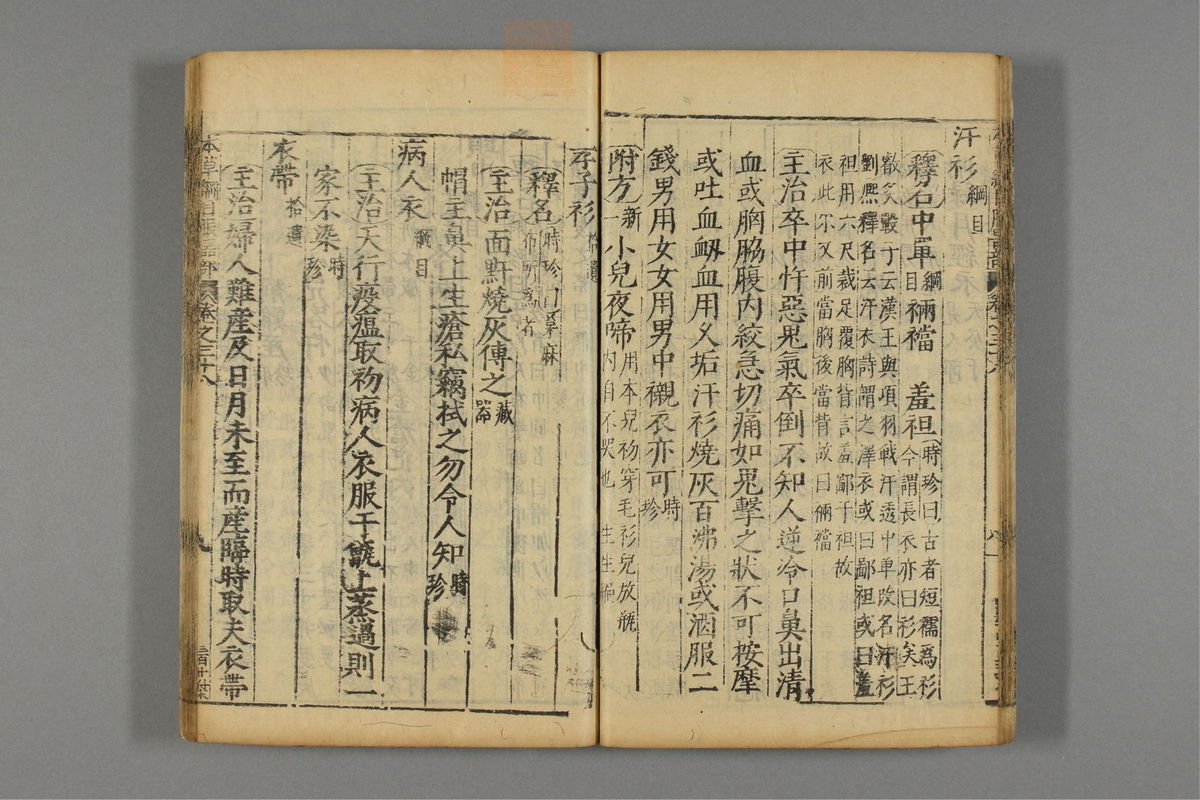 汗衫綱目
釋名中單綱目裲襠 羞袒時珍曰古者短襦為衫今謂長衣亦曰衫矣王
叡炙轂子云漢王與項羽戰汗透中單改名汗衫劉熙釋名云汗衣詩謂之澤衣或曰鄙袒或曰羞
袒用六尺裁足覆胸背言羞鄙于袒故衣此尒又前當胸後當背故曰裲襠
主治卒中忤惡鬼氣卒倒不知人逆冷口鼻出清
血或胸脇腹內絞急切痛如鬼擊之狀不可按摩
或吐血衂血用乆垢汗衫燒灰百沸湯或酒服二
錢男用女女用男中襯衣亦可時珍
附方新一小兒夜啼用本兒初穿毛衫兒放瓶內自不哭也 生生編
孝子衫拾遺
釋名時珍曰枲麻布所為者
主治面䵟燒灰傅之藏器
帽主鼻上生瘡私竊拭之勿令人知時珍
病人衣綱目
主治天行疫瘟取初病人衣服于甑上蒸過則一
家不染時珍
衣帶拾遺
主治婦人難産及日月未至而産臨時取夫衣帶
本草綱目服器部 卷之三十八 九